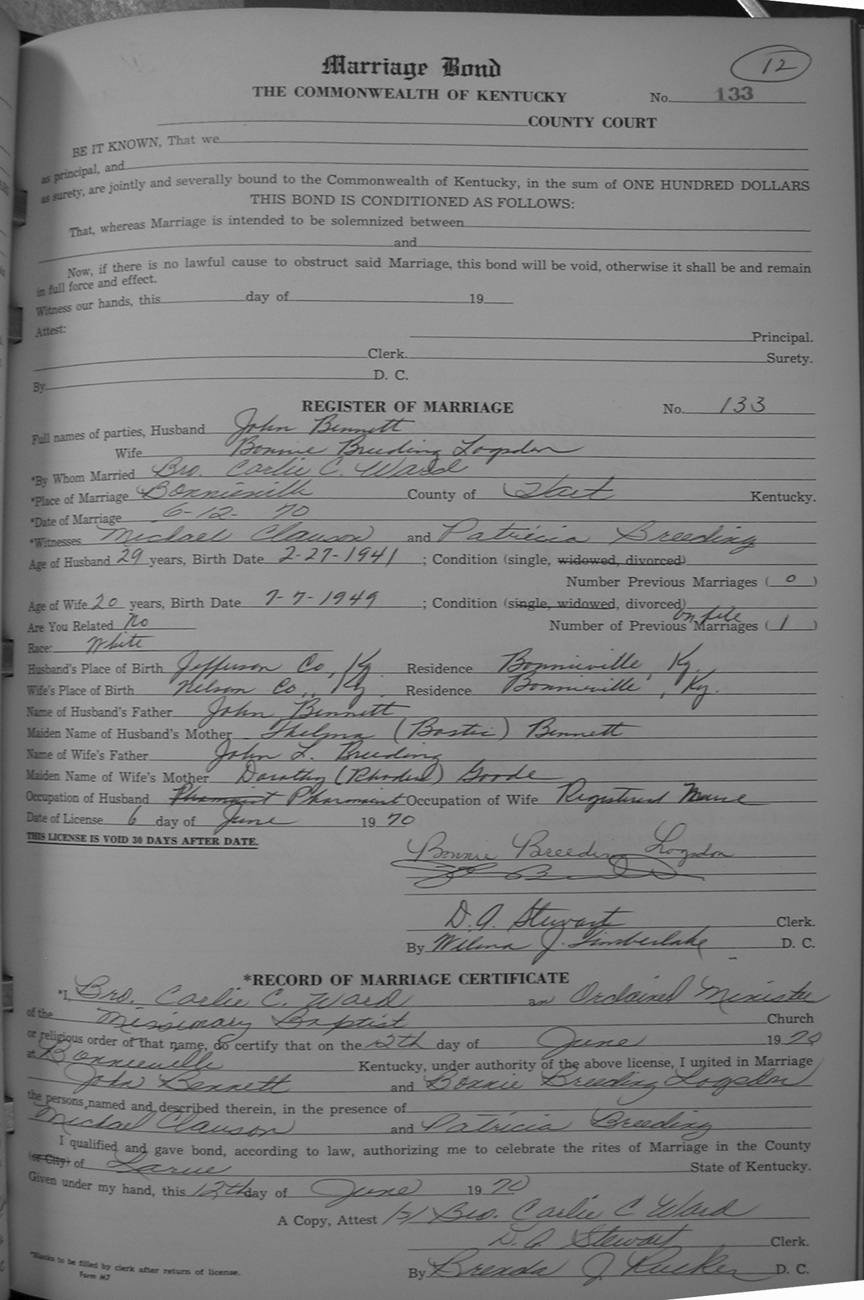 12
Marriage Bond
THE COMMONWEALTH OF KENTUCKY No. 133
COUNTY COURT
BE IT KNOWN, That we
as principal, and
as surety, are jointly and severally bound to the Commonwealth of Kentucky, in the sum of ONE HUNDRED DOLLARS
THIS BOND IS CONDITIONED AS FOLLOWS:
That, whereas Marriage is intended to be solemnized between
and
Now, if there is no lawful cause to obstruct said Marriage, this bond will be void, otherwise it shall be and remain
in full force and effect.
Witness our hands, this day of 19
Attest:
Principal.
Clerk.
Surety.
By D. C.
REGISTER OF MARRIAGE No. 133
Full names of parties, Husband John Bennett
Wife Bonnie Breeding Logsdon
*By Whom Married Bro. Carlie C. Ward
*Place of Marriage Bonnieville County of Hart Kentucky.
*Date of Marriage 6-12-70
*Witnesses Michael Clauson and Patricia Breeding
Age of Husband 29 years, Birth Date 2-27-1941 ; Condition (single, widowed, divorced)
Number Previous Marriages ( 0 )
Age of Wife 20 years, Birth Date 7-7-1949 ; Condition (single, widowed, divorced)
on file
Are You Related No Number of Previous Marriages ( 1 )
Race: White
Husband's Place of Birth Jefferson Co, Ky. Residence Bonnieville, Ky.
Wife's Place of Birth Nelson Co., Ky. Residence Bonnieville, Ky.
Name of Husband's Father John Bennett
Maiden Name of Husband's Mother Thelma (Bostic) Bennett
Name of Wife's Father John L. Breeding
Maiden Name of Wife's Mother Dorothy (Rhodes) Goode
Occupation of Husband Pharmacist Occupation of Wife Registered Nurse
Date of License 6 day of June 1970
THIS LICENSE IS VOID 30 DAYS AFTER DATE.
Bonnie Breeding Logsdon
D. A. Stewart Clerk.
By Wilma J. Timberlake D. C.
*RECORD OF MARRIAGE CERTIFICATE
*I, Bro. Carlie C. Ward an Ordained Minister
of the Missionary Baptist Church
or religious order of that name, do certify that on the 12th day of June 1970
at Bonnieville Kentucky, under authority of the above license, I united in Marriage
John Bennett and Bonnie Breeding Logsdon
the persons named and described therein, in the presence of
Michael Clauson and Patricia Breeding
I qualified and gave bond, according to law, authorizing me to celebrate the rites of Marriage in the County
(or City) of Larue State of Kentucky.
Given under my hand, this 12th day of June 1970
A Copy, Attest /s/ Bro. Carlie C Ward
D. A Stewart Clerk.
By Brenda J. Rucker D. C.
*Blanks to be filled by clerk after return of license.
Form M7